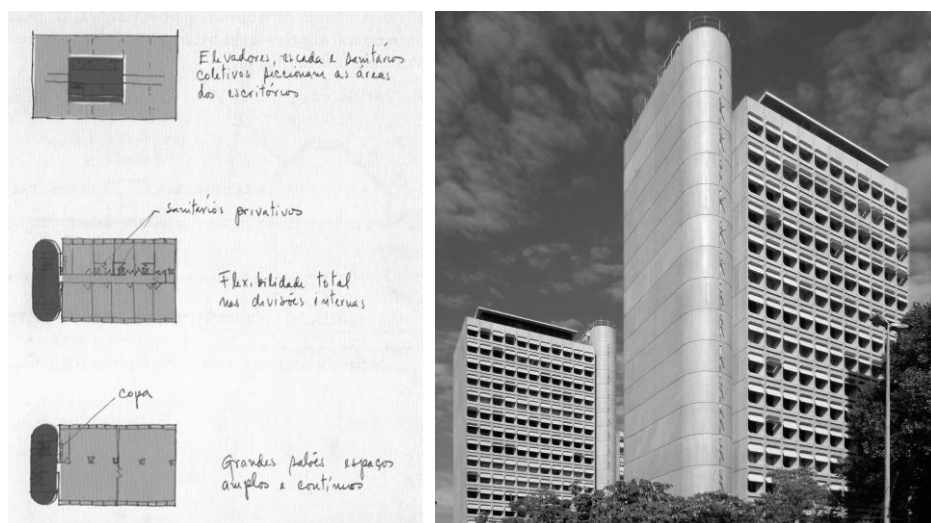 Elevadores, escada e sanitários
coletivos seccionam as áreas
dos escritórios
sanitários privativos
Flexibilidade total
nas divisões internas
copa
Grandes salões, espaços
amplos e contínuos